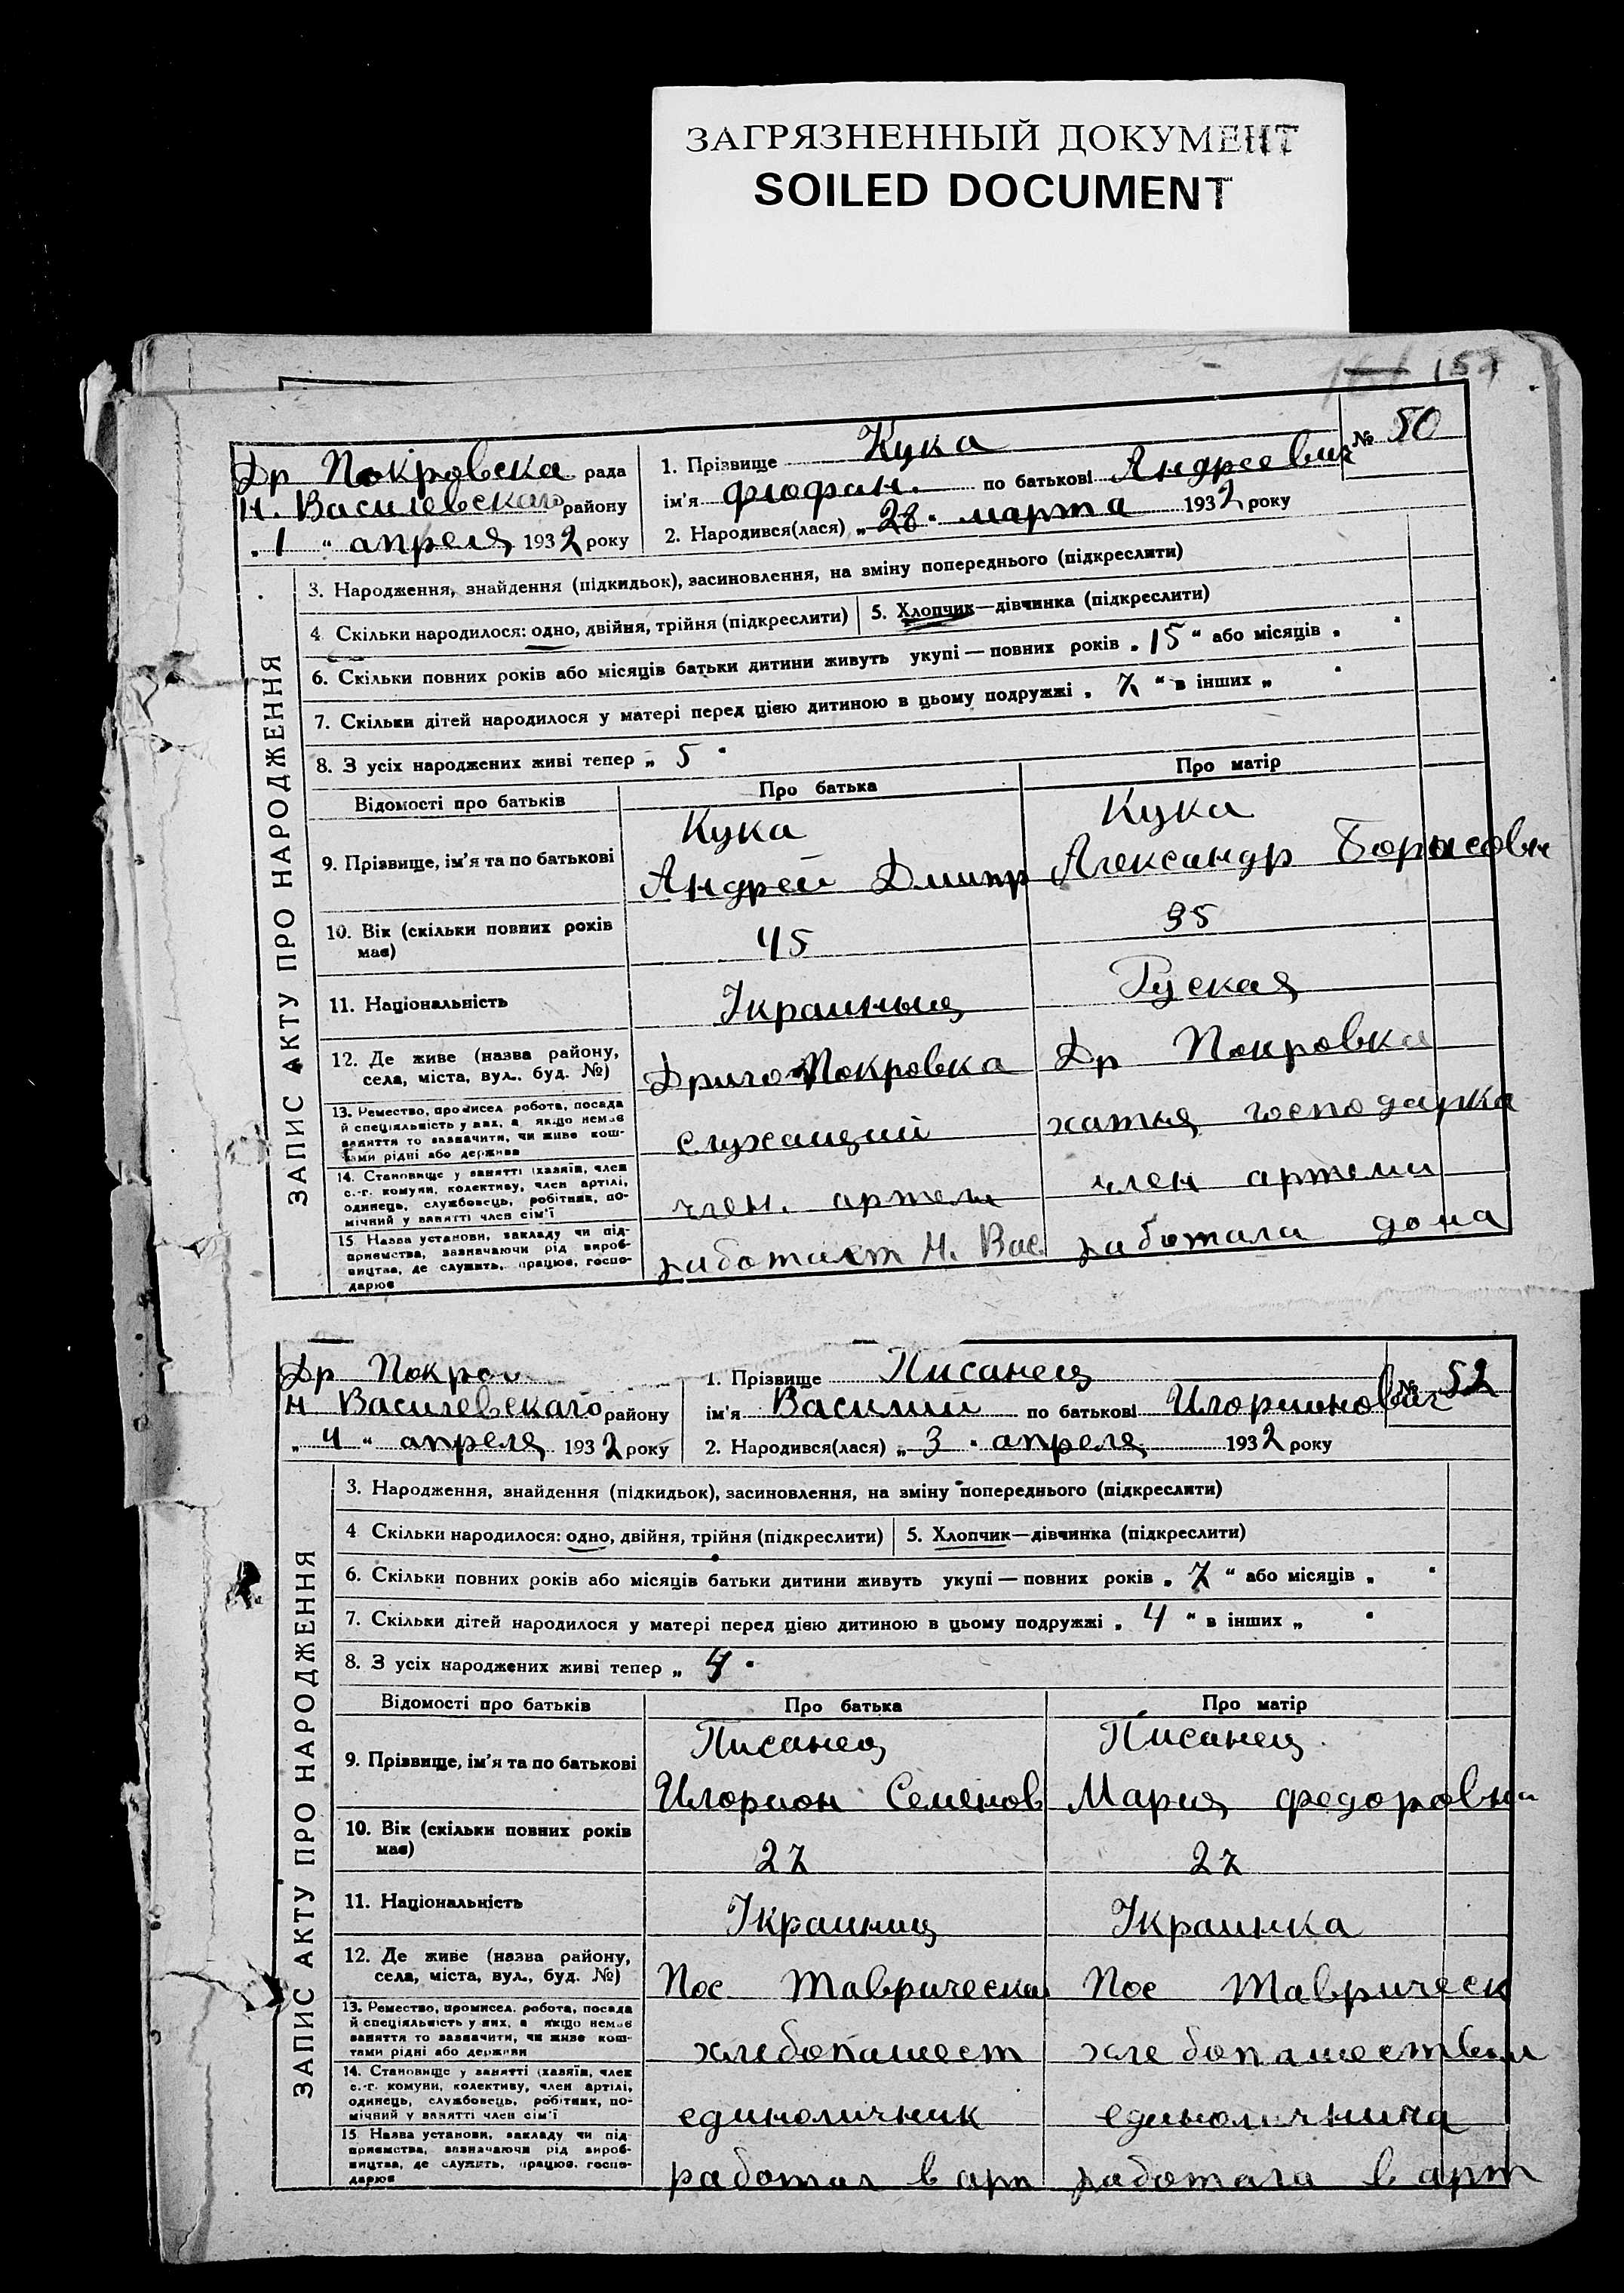 ЗАГРЯЗНЕННЫЙ ДОКУМЕНТ
SOILED DOCUMENT
157
№ 50
Др Покровска рада
Н. Василевскаго району
„ 1 “ апреля 1932 року
1. Прізвище Кука
ім'я Фюфан. по батькові Андреевич
2. Народився(лася) „ 28 “ марта 1932 року
ЗАПИС АКТУ ПРО НАРОДЖЕННЯ
3. Народження, знайдення (підкидьок), засиновлення, на зміну попереднього (підкреслити)
4 Скільки народилося: одно, двійня, трійня (підкреслити) 5. Хлопчик—дівчинка (підкреслити)
6. Скільки повних років або місяців батьки дитини живуть укупі — повних років „ 15 “ або місяців „ “
7. Скільки дітей народилося у матері перед цією дитиною в цьому подружжі „ 7 “ в інших „ “
8. З усіх народжених живі тепер „ 5 “
Відомості про батьків Про батька Про матір
9. Прізвище, ім'я та по батькові
Кука Кука
Андрей Дмитр Александр Борисовн
10. Вік (скільки повних років має) 45 35
11. Національність Украиныц Руская
12. Де живе (назва району, села, міста, вул., буд. №) Покровка Др Покровка
13. Ремество, промисел робота, посада
й спеціяльність у них, а якщо немає
заняття то зазначити, чи живе кош-
тами рідні або держава
служащий хатня господарка
14. Становище у занятті (хазяїн, член
с.-г. комуни, колективу, член артілі,
одинець, службовець, робітник, по-
мічний у занятті член сім'ї
член. артели член артели
15 Назва установи, закладу чи під-
приємства, зазначаючи рід вироб-
ництва, де служить, працює, госпо-
дарює
работает Н. Вас. работала дома
Др Покров
Н Василевскаго району
„ 4 “ апреля 1932 року
1. Прізвище Писанец
№ 52
ім'я Василий по батькові Илорионович
2. Народився(лася) „ 3 “ апреля 1932 року
ЗАПИС АКТУ ПРО НАРОДЖЕННЯ
3. Народження, знайдення (підкидьок), засиновлення, на зміну попереднього (підкреслити)
4 Скільки народилося: одно, двійня, трійня (підкреслити) 5. Хлопчик—дівчинка (підкреслити)
6. Скільки повних років або місяців батьки дитини живуть укупі — повних років „ 7 “ або місяців „ “
7. Скільки дітей народилося у матері перед цією дитиною в цьому подружжі „ 4 “ в інших „ “
8. З усіх народжених живі тепер „ 4 “
Відомості про батьків Про батька Про матір
9. Прізвище, ім'я та по батькові
Писанец Писанец
Илорион Семенов Мария Федоровна
10. Вік (скільки повних років має) 27 27
11. Національність Украинц Украинка
12. Де живе (назва району, села, міста, вул., буд. №) Пос Таврическа Пос Таврическ
13. Ремество, промисел. робота, посада
й спеціяльність у них, а якщо немає
заняття то зазначити, чи живе кош-
тами рідні або держави
хлебопашест хлебопашеством
14. Становище у занятті (хазяїн, член
с.-г. комуни, колективу, член артілі,
одинець, службовець, робітник, по-
мічний у занятті член сім'ї
единоличник единоличница
15 Назва установи, закладу чи під-
приємства, зазначаючи рід вироб-
ництва, де служить, працює, госпо-
дарює
работал в арт работала в арт